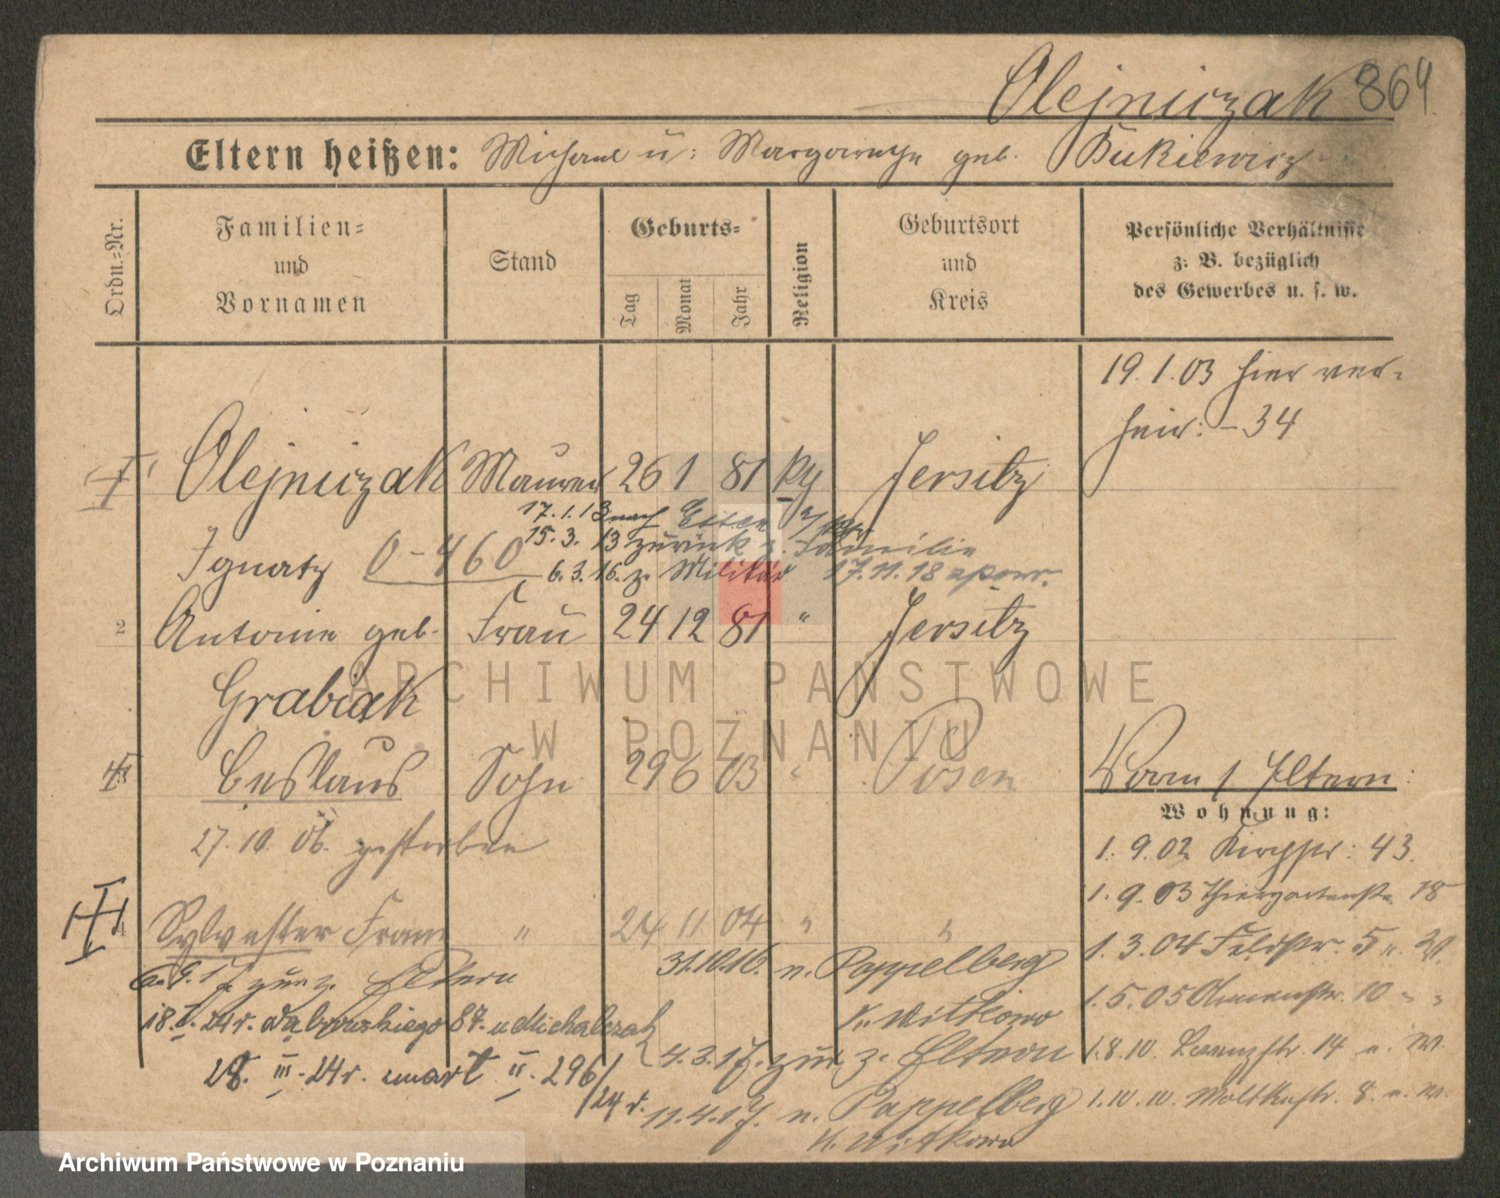 Olejniczak 864
Eltern heißen: Michael u: Margarethe geb. Bukiewicz
Ordn.-Nr.
Familien- und Vornamen
Stand
Geburts-
Tag
Monat
Jahr
Religion
Geburtsort und Kreis
Persönliche Verhältnisse z. B. bezüglich des Gewerbes u. s. w.
19.1.03 hier ver-
heir: - 34
Olejniczak Maurer 26 1 81 Jersitz
17.1.13 nach Essen
Ignatz 0-460 15.3.13 zurück z. Familie
6.3.16. z. Militär 17.11.18
2 Antonie geb. Frau 24 12 81 " Jersitz
Grabiak
Ceslaus Sohn 29 6 03 " Posen
27.10.06. gestorben
Vorm / Eltern:
Wohnung:
1.9.02 Kirchstr: 43.
1.9.03 Thiergartenstr. 18
Sylvester Franz " 24 11 04 " "
1.3.04 Feldstr. 5
31.10.16. n. Pappelberg
K. Witkowo
6.9.17. zur z. Eltern
1.5.05 Blumenstr. 10 " "
18.I.24r. Dąbrowskiego 87. u Michalczak
4.3.17. zur z. Eltern
1.8.10. 14
28.III.24r. umarł II.296/24r.
11.4.17. n. Pappelberg
K. Witkowo
1.10.10. Moltkestr. 8.
ARCHIWUM PAŃSTWOWE
W POZNANIU
Archiwum Państwowe w Poznaniu